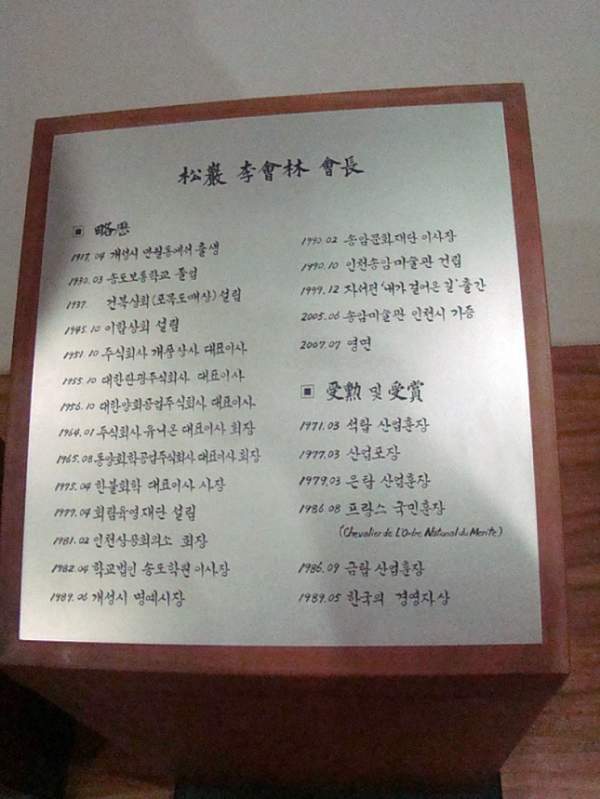 松巖 李會林 會長
▣ 略歷
1917.04 개성시 만월동에서 출생
1930.03 송도보통학교 졸업
1937. 건복상회(포목도매상) 설립
1945.10 이합상회 설립
1951.10 주식회사 개풍상사 대표이사
1955.10 대한탄광주식회사 대표이사
1956.10 대한양회공업주식회사 대표이사
1964.01 주식회사 유니온 대표이사 회장
1965.08 동양화학공업주식회사 대표이사 회장
1975.04 한불화학 대표이사 사장
1979.04 회림육영재단 설립
1981.02 인천상공회의소 회장
1982.04 학교법인 송도학원 이사장
1989.06 개성시 명예시장
1990.02 송암문화재단 이사장
1990.10 인천송암미술관 건립
1999.12 자서전 '내가 걸어온 길' 출간
2005.06 송암미술관 인천시 기증
2007.07 영면
▣ 受勳 및 受賞
1971.03 석탑 산업훈장
1977.03 산업포장
1979.03 은탑 산업훈장
1986.08 프랑스 국민훈장
(Chevalier de L'Ordre National du Merite)
1986.09 금탑 산업훈장
1989.05 한국의 경영자상